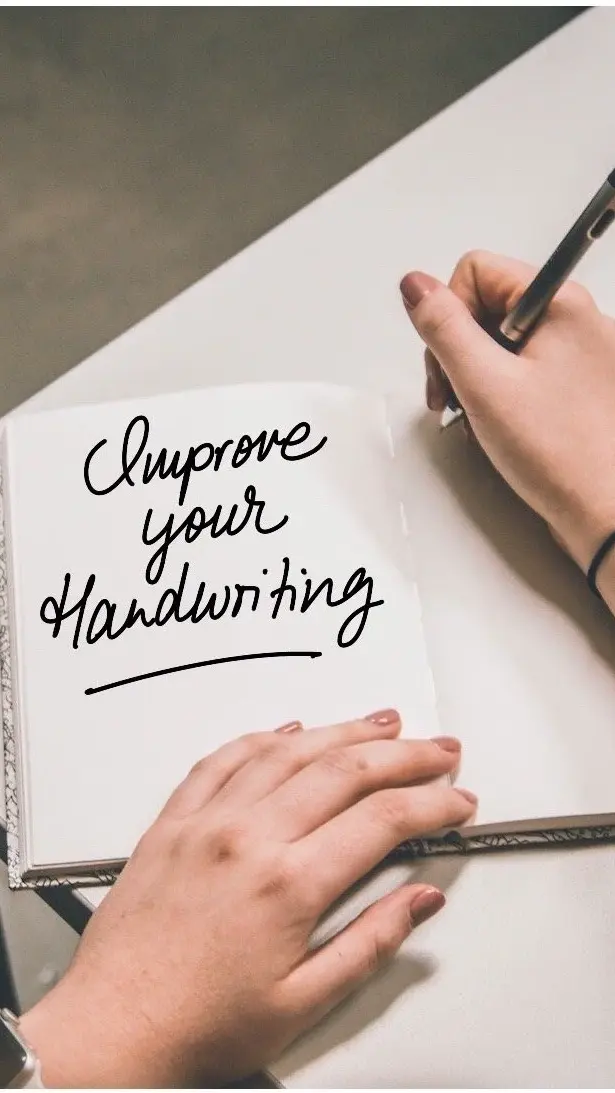 Improve
your
Handwriting